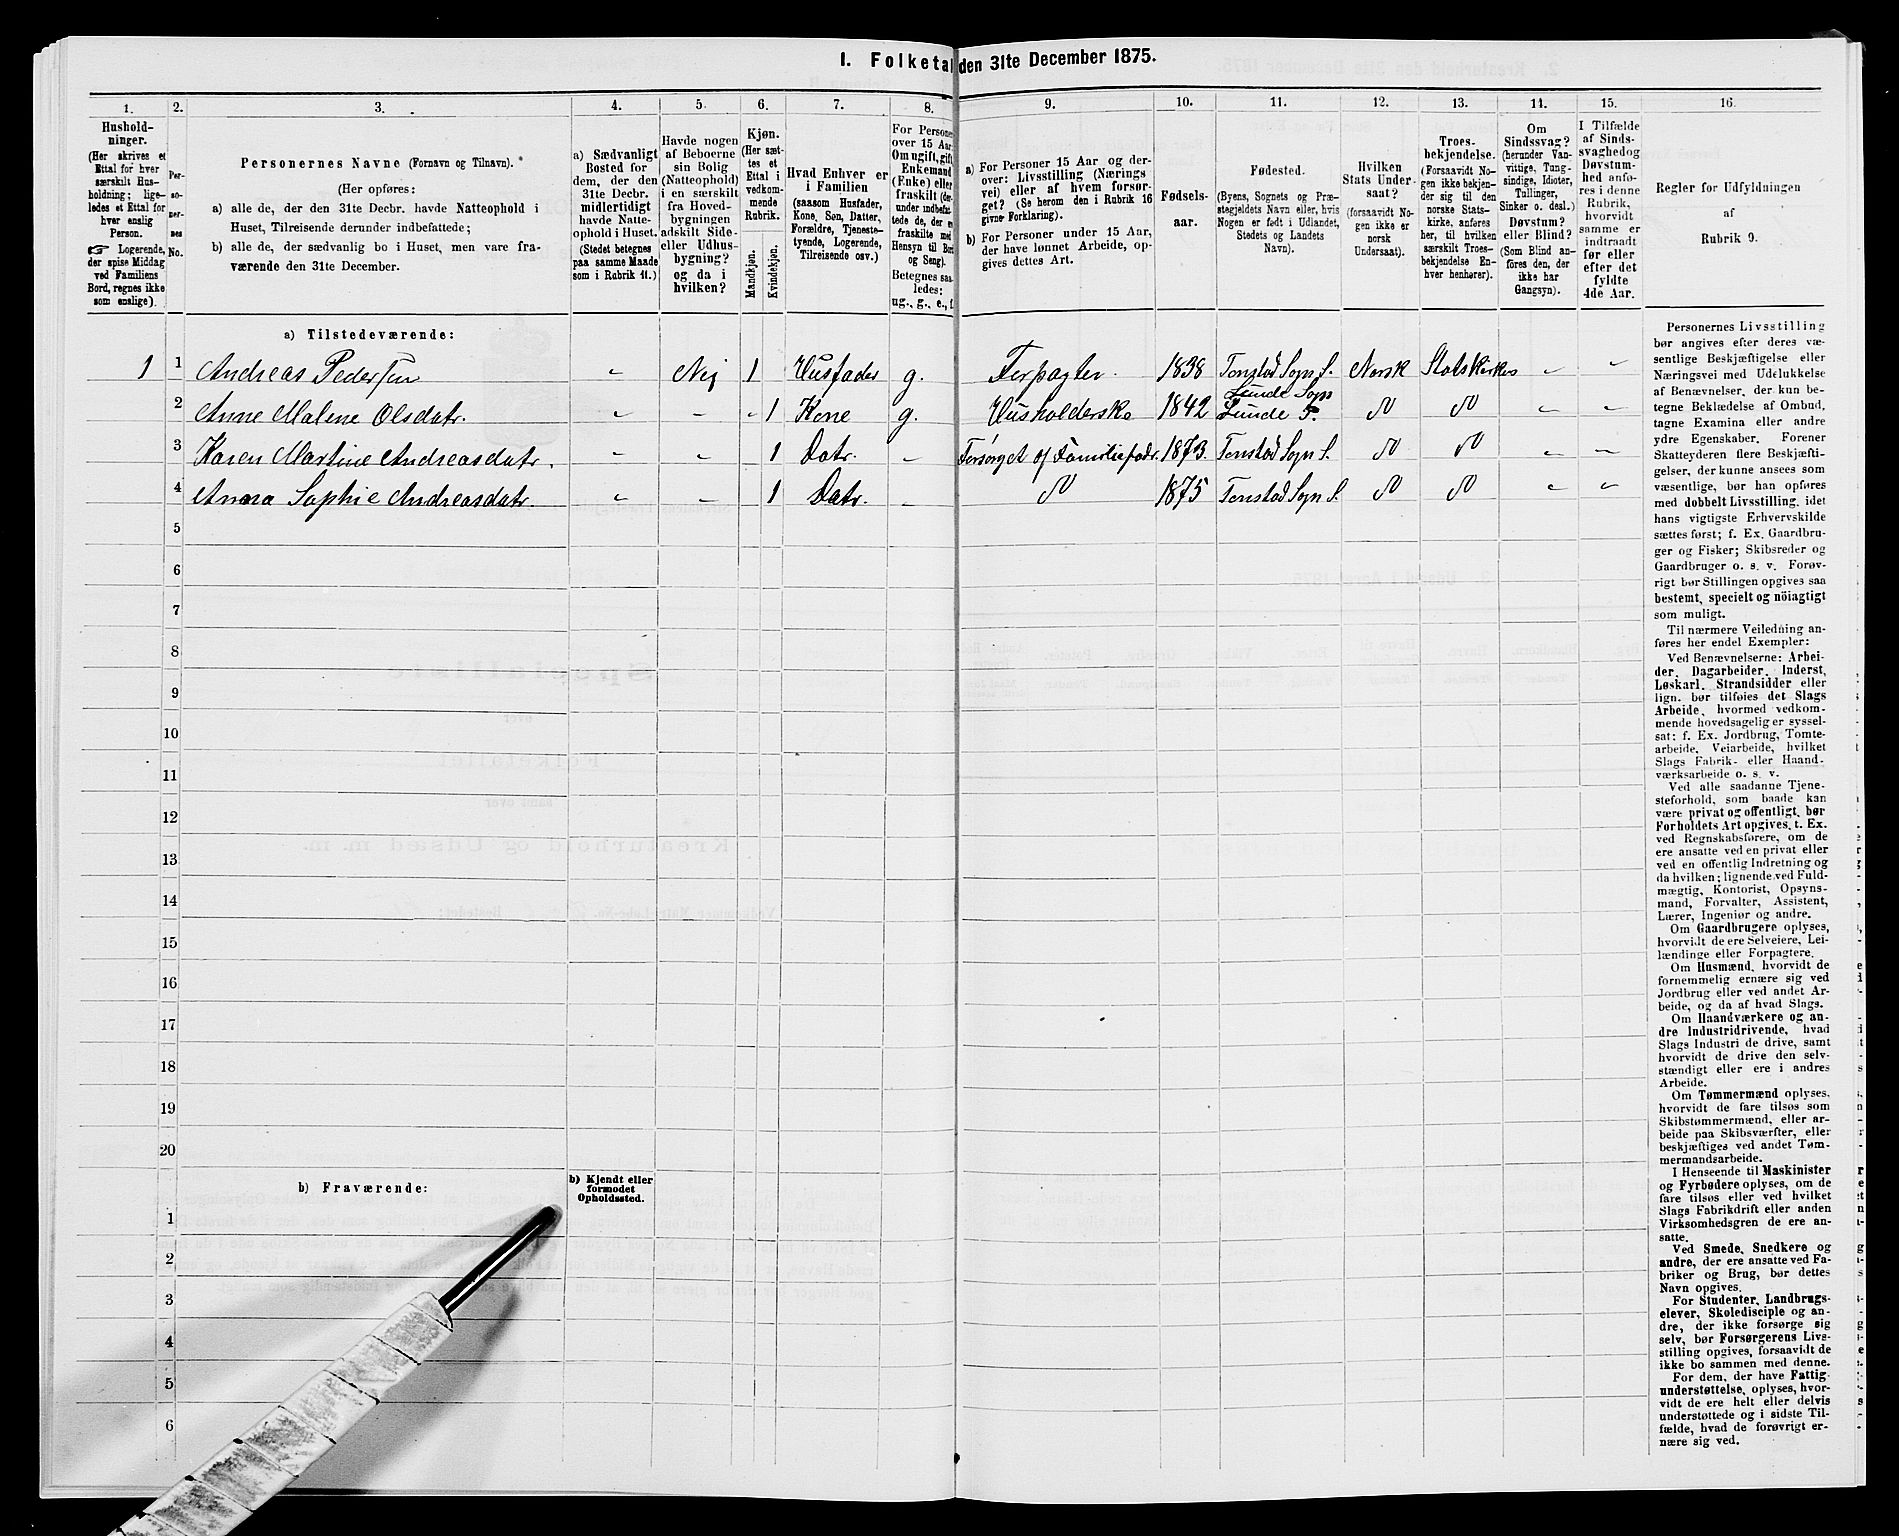 I. Folketal den 31te December 1875.
1.
Hushold-
ninger.
(Her skrives et
Ettal for hver
særskilt Hus-
holdning; lige-
ledes et Ettal for
hver enslig
Person.
☞ Logerende,
der spise Middag
ved Familiens
Bord, regnes ikke
som enslige).
2.
Per-
so-
ner-
nes
No.
3.
Personernes Navne (Fornavn og Tilnavn).
(Her opføres:
a) alle de, der den 31te Decbr. havde Natteophold i
Huset, Tilreisende derunder indbefattede;
b) alle de, der sædvanlig bo i Huset, men vare fra-
værende den 31te December.
4.
a) Sædvanligt
Bosted for
dem, der den
31te Decbr.
midlertidigt
havde Natte-
ophold i Huset.
(Stedet betegnes
paa samme Maade
som i Rubrik 11.)
5.
Havde nogen
af Beboerne
sin Bolig
(Natteophold)
i en særskilt
fra Hoved-
bygningen
adskilt Side-
eller Udhus-
bygning?
og da i
hvilken?
6.
Kjøn.
(Her sæt-
tes et
Ettal i
vedkom-
mende
Rubrik.
Mandkjøn.
Kvindekjøn.
7.
Hvad Enhver er
i Familien
(saasom Husfader,
Kone, Søn, Datter,
Forældre, Tjeneste-
tyende, Logerende,
Tilreisende osv.)
8.
For Persone
over 15 Aar:
Om ugift, gift,
Enkemand
(Enke) eller
fraskilt (der-
under indbefat-
tede de, der er
fraskilte med
Hensyn til Bor
og Seng).
Betegnes saa-
ledes:
ug., g., e., f.
9.
a) For Personer 15 Aar og der-
over: Livsstilling (Nærings
vei) eller af hvem forsør-
get? (Se herom den i Rubrik 16
givne Forklaring).
b) For Personer under 15 Aar,
der have lønnet Arbeide, op-
gives dettes Art.
10.
Fødsels-
aar.
11.
Fødested.
(Byens, Sognets og Præ-
stegjeldets Navn eller, hvis
Nogen er født i Udlandet,
Stedets og Landets
Navn).
12.
Hvilken
Stats Under-
saat?
(forsaavidt No-
gen ikke er
norsk
Undersaat).
13.
Troes-
bekjendelse.
(Forsaavidt No-
gen ikke bekjen-
der sig til den
norske Stats-
kirke, anføres
her, til hvilken
særskilt Troes-
bekjendelse En-
hver henhører).
14.
Om
Sindssvag?
(herunder Van-
vittige, Tung-
sindige, Idioter,
Tullinger,
Sinker o. desl.)
Døvstum?
eller Blind?
(Som Blind an-
føres den, der
ikke har
Gangsyn).
15.
I Tilfælde
af Sinds-
svaghedog
Døvstum-
hed anfø-
res i denne
Rubrik,
hvorvidt
samme er
indtraadt
før eller
efter det
fyldte
4de Aar.
16.
Regler for Udfyldningen
af
Rubrik 9.
a) Tilstedeværende:
1 1 Andreas Pedersen „ Nej 1 Husfader g. Forpagter. 1838 Tonstad Sogn S. Norsk Statskirken „ „
2 Anne Malene Olsdatr. „ „ „ 1 Kone g. Husholderske 1842 Lunde Sogn
Lunde P. „ „ „ „
3 Karen Martine Andreasdatr. „ „ 1 Datr. „ Forsørget af Familiefadr. 1873. Tonstad Sogn S. „ „ „ „
4 Anna Sophie Andreasdatr. „ „ 1 Datr. „ „ 1875 Tonstad Sogn S. „ „ „ „
5
6
7
8
9
10
11
12
13
14
15
16
17
18
19
20
b) Fraværende:
b) Kjendt eller
formodet
Opholdssted.
1
2
3
4
5
6
Personernes Livsstilling
bør angives efter deres væ-
sentlige Beskjæftigelse eller
Næringsvei med Udelukkelse
af Benævnelser, der kun be-
tegne Beklædelse af Ombud,
tagne Examina eller andre
ydre Egenskaber. Forener
Skatteyderen flere Beskjæfti-
gelser, der kunne ansees som
væsentlige, bør han opføres
med dobbelt Livsstilling, idet
hans vigtigste Erhvervskilde
sættes først; f. Ex. Gaardbru-
ger og Fisker; Skibsreder og
Gaardbruger o. s. v. Forøv-
rigt bør Stillingen opgives saa
bestemt, specielt og nöiagtigt
som muligt.
Til nærmere Veiledning an-
føres her endel Exempler:
Ved Benævnelserne: Arbei-
der, Dagarbeider, Inderst,
Løskarl, Strandsidder eller
lign. bør tilføies det Slags
Arbeide, hvormed vedkom-
mende hovedsagelig er syssel-
sat; f. Ex. Jordbrug, Tomte-
arbeide, Veiarbeide, hvilket
Slags Fabrik- eller Haand-
værksarbeide o. s. v.
Ved alle saadanne Tjene-
steforhold, som baade kan
være privat og offentligt, bør
Forholdets Art opgives, t. Ex.
ved Regnskabsførere, om de
ere ansatte ved en privat eller
ved en offentlig Indretning og
da hvilken; lignende ved Fuld-
mægtig, Kontorist, Opsyns-
mand, Forvalter, Assistent,
Lærer, Ingeniør og andre.
Om Gaardbrugere oplyses,
hvorvidt de ere Selveiere, Lei-
lændinge eller Forpagtere.
Om Husmænd, hvorvidt de
fornemmelig ernære sig ved
Jordbrug eller ved andet Ar-
beide, og da af hvad Slags.
Om Haandværkere og an-
dre Industridrivende, hvad
Slags Industri de drive, samt
hvorvidt de drive den selv-
stændigt eller ere i andres
Arbeide.
Om Tømmermænd oplyses,
hvorvidt de fare tilsøs som
Skibstømmermænd, eller ar-
beide paa Skibsværfter, eller
beskjæftiges ved andet Tøm-
mermandsarbeide.
I Henseende til Maskinister
og Fyrbødere oplyses, om de
fare tilsøs eller ved hvilket
Slags Fabrikdrift eller anden
Virksomhedsgren de ere an-
satte.
Ved Smede, Snedkere og
andre, der ere ansatte ved Fa-
briker og Brug, bør dettes
Navn opgives.
For Studenter, Landbrugs-
elever, Skoledisciple og an-
dre, der ikke forsørge sig
selv, bør Forsørgerens Livs-
stilling opgives, forsaavidt de
ikke bo sammen med denne.
For dem, der have Fattig-
understøttelse, oplyses, hvor-
vidt de ere helt eller delvis
understøttede og i sidste Til-
fælde, hvad de forøvrigt er-
nære sig ved.